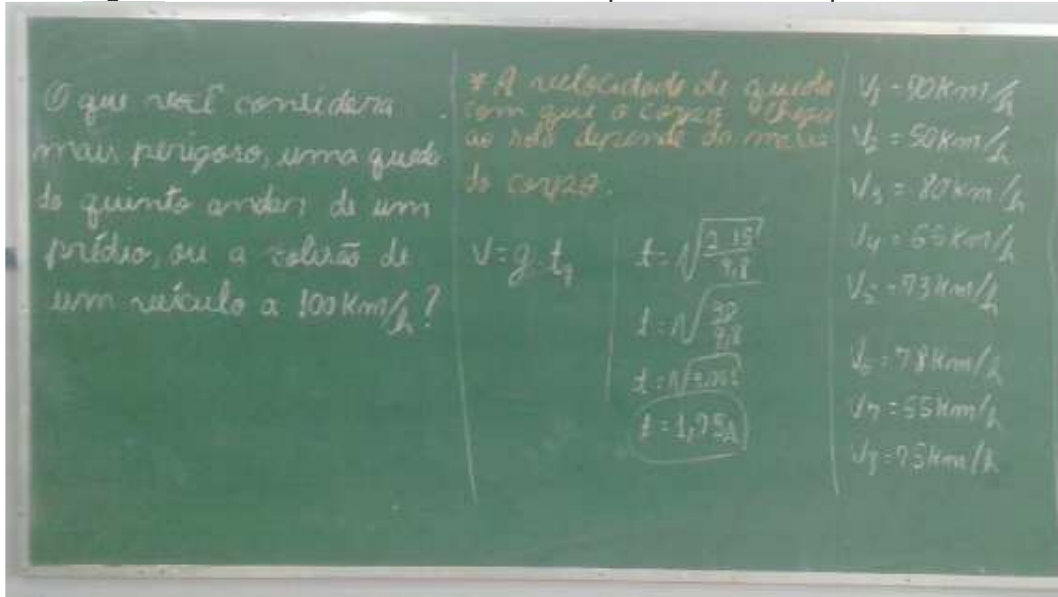 O que você considera
mais perigoso, uma queda
do quinto andar de um
prédio, ou a colisão de
um veículo a 100 Km/h?
* A velocidade de queda
com que o corpo chega
ao solo depende da massa
do corpo.
V = g . t
t = √
t = √
t = √
t = 1,75s
V1 = 90Km/h
V2 = 50Km/h
V3 = 80Km/h
V4 = 65Km/h
V5 = 73Km/h
= 78Km/h
V7 = 55Km/h
= 75Km/h